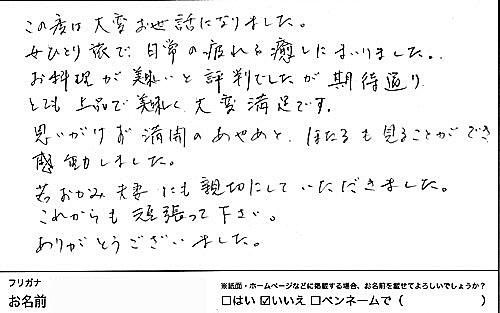 この度は大変お世話になりました。
女ひとり旅で、日常の疲れを癒しにまいりました。
お料理が美味いと評判でしたが期待通り
とても上品で美味しく大変満足です。
思いがけず満開のあやめと、ほたるも見ることができ
感動しました。
若おかみ夫妻にも親切にしていただきました。
これからも頑張って下さい。
ありがとうございました。
フリガナ
お名前
※紙面・ホームページなどに掲載する場合、お名前を載せてよろしいでしょうか?
□はい ☑いいえ □ペンネームで( )